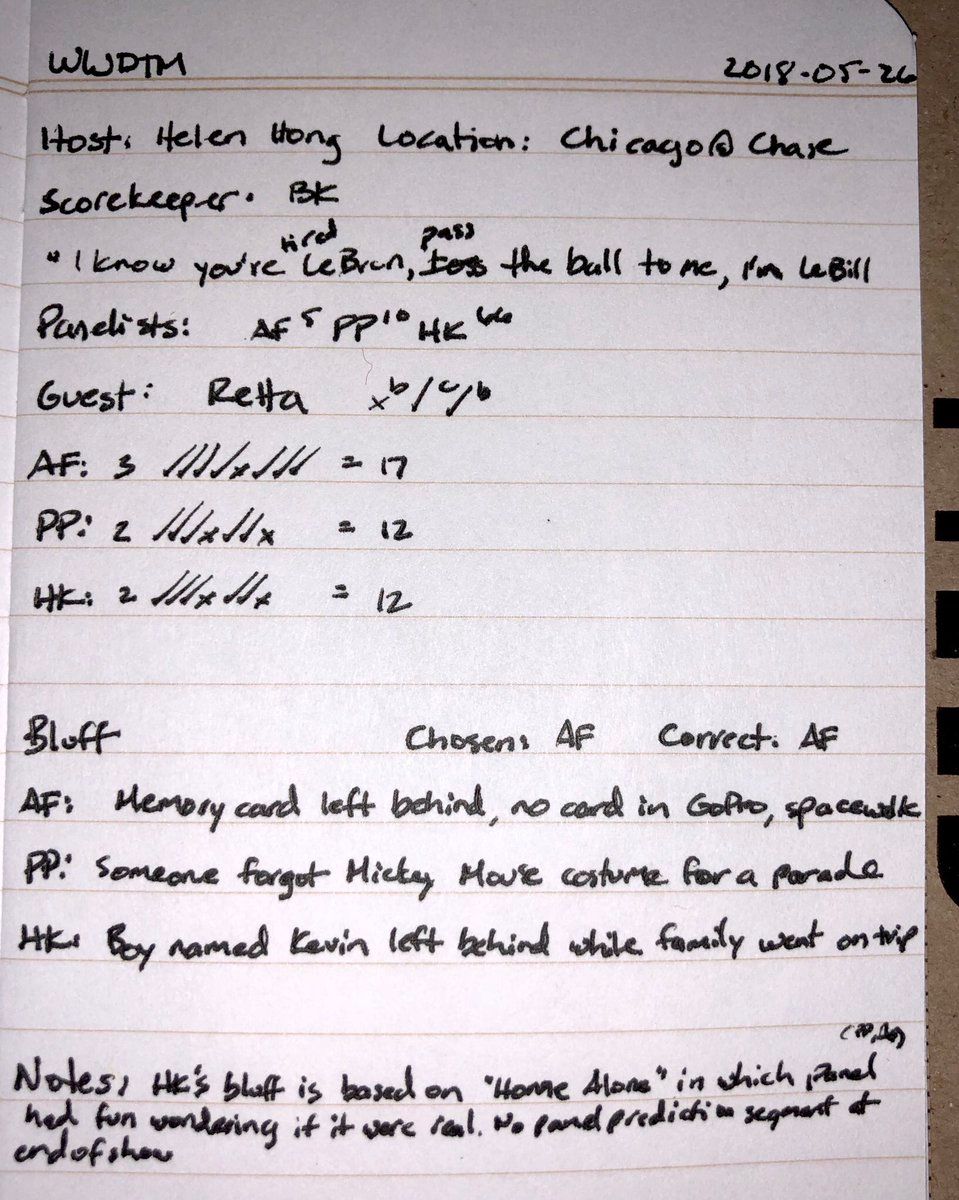 WWDTM 2018-05-26
Host: Helen Hong Location: Chicago @ Chase
Scorekeeper: BK
tired pass
"I know you're LeBron, toss the ball to me, I'm LeBill
Panelists: AF 5 PP 10 HK 66
Guest: Retta x b/c/b
AF: 3 = 17
PP: 2 = 12
HK: 2 = 12
Bluff Chosen: AF Correct: AF
AF: Memory card left behind, no card in GoPro, spacewalk
PP: Someone forgot Mickey Mouse costume for a parade
HK: Boy named Kevin left behind while family went on trip
Notes: HK's bluff is based on "Home Alone" in which panel
had fun wondering if it were real. No panel prediction segment at
end of show